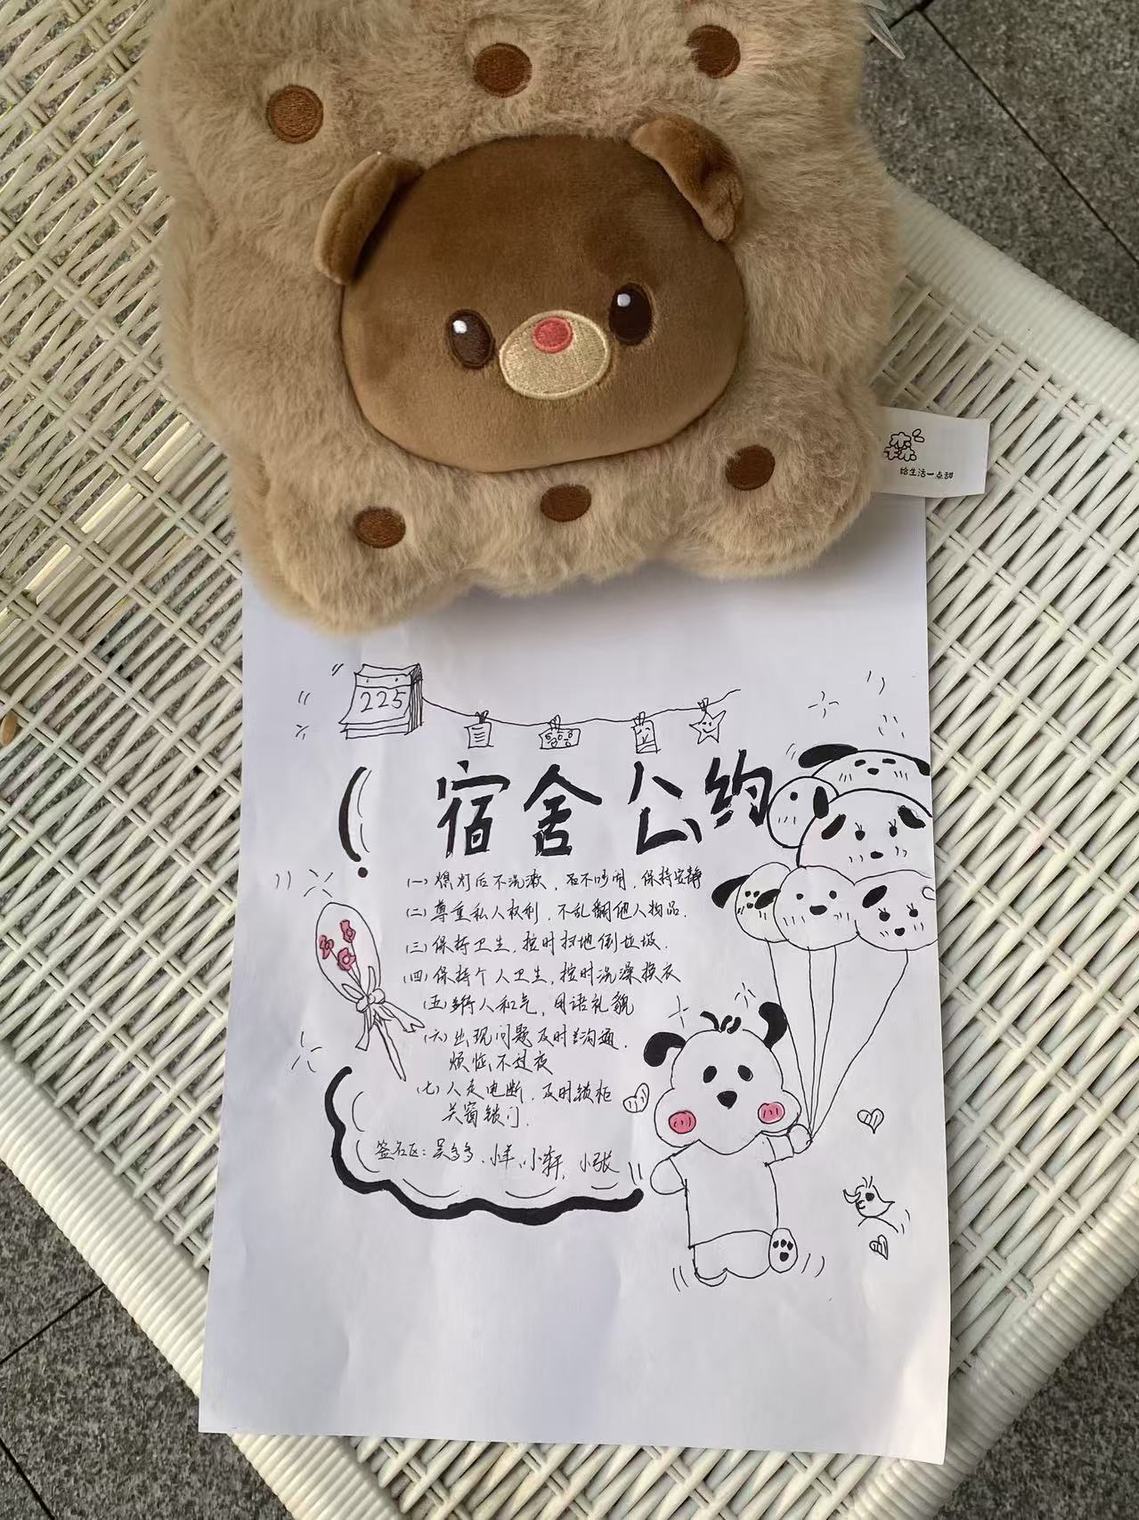 森林
给生活一点甜
225
宿舍公约
(一)熄灯后不洗漱,不吵闹,保持安静
(二)尊重私人权利,不乱翻他人物品.
(三)保持卫生,按时扫地倒垃圾.
(四)保持个人卫生,按时洗澡换衣
(五)待人和气,用语礼貌
(六)出现问题及时沟通.
烦恼不过夜
(七)人走电断,及时锁柜
关窗锁门.
签名区:吴多多、小羊、小轩、小张